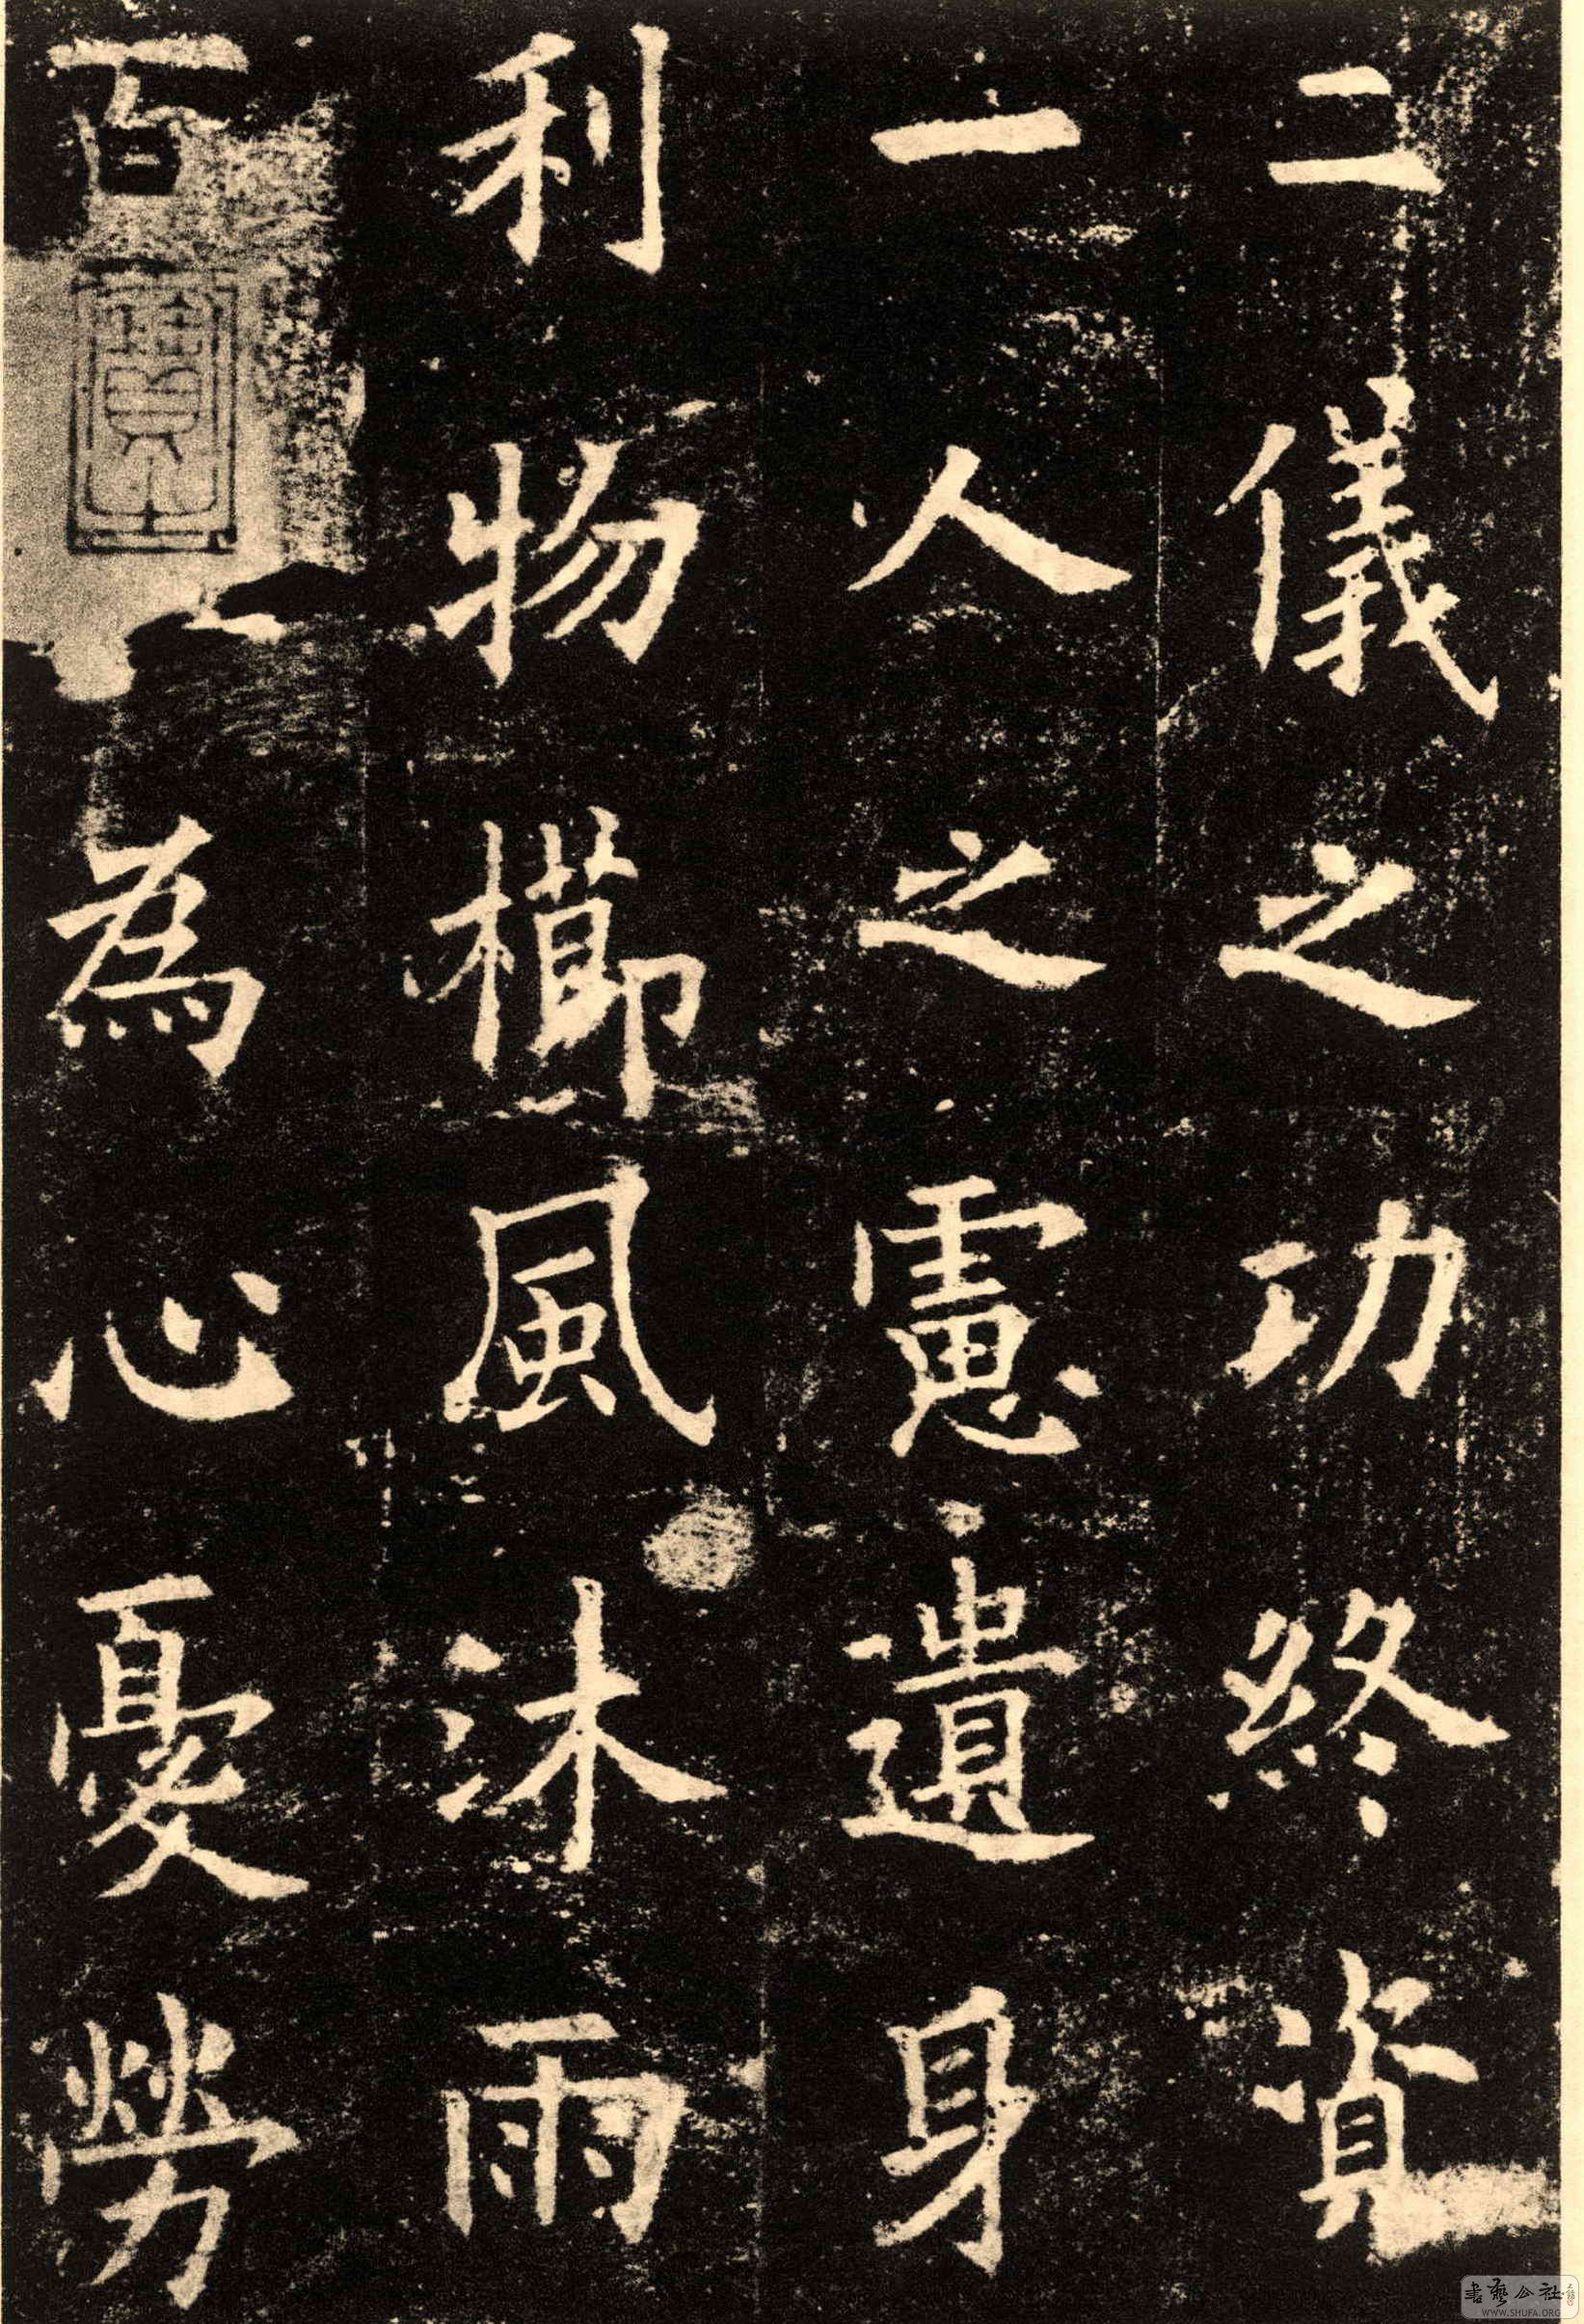 二儀之功終資
一人之慮遺身
利物櫛風沐雨
百為心憂勞
書藝公社
WWW.SHUFA.ORG